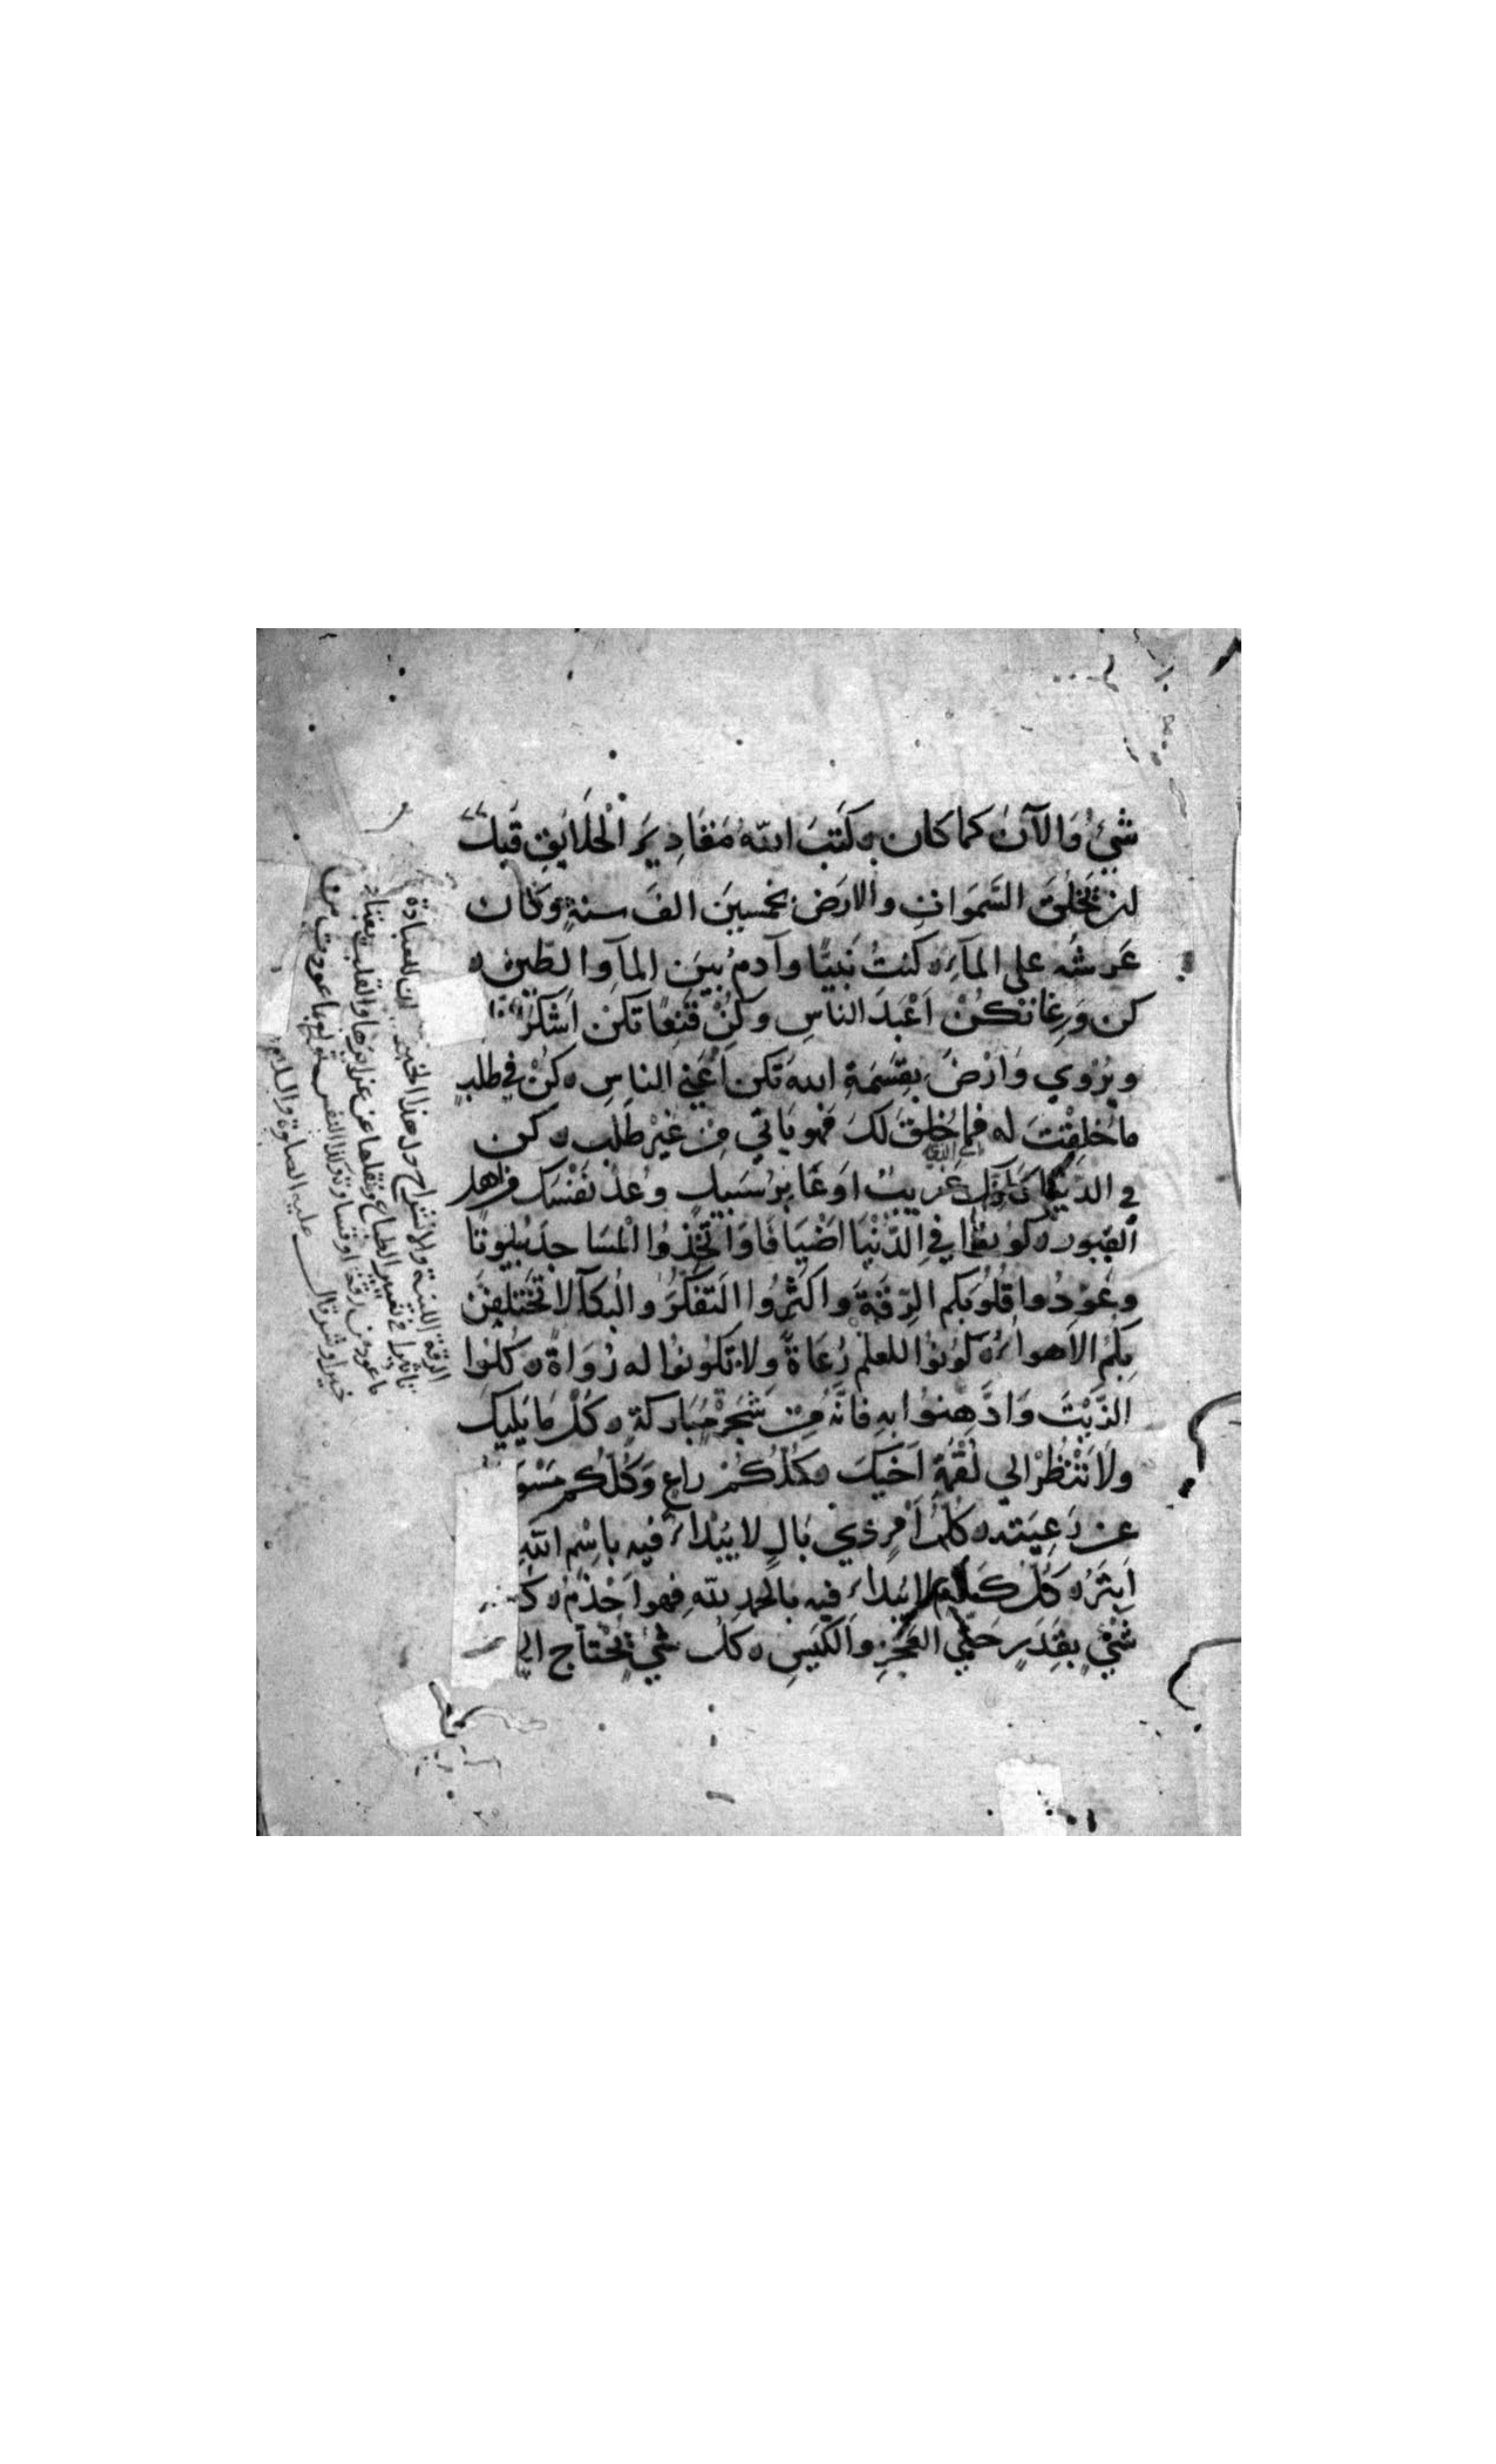 شَيْءٌ وَالآنَ كما كَان ه كَتَبَ اللهُ مَقَادِيرَ الْخَلَايِقِ قَبْلَ
ان يَخْلُقَ السَّمَوَاتِ والارَض بخمسينَ الفَ سنةٍ وكَان
عَرشُه على المآءِ ه كنتُ نَبِيًّا وآدمُ بينَ المآءِ والطِّينِ ه
كن وَرِعًا تكُنْ اَعْبَدَ الناسِ وكُنْ قَنِعًا تكنْ اَشكَرَ
ويُرْوي وَارْضَ بِقِسْمَةِ اللهِ تكن اَغْنَى الناسِ ه كنْ في طلبِ
ما خُلِقْتَ له فما خُلِقَ لكَ فهو يَاتي مِن غيْرِ طَلَبٍ ه كن
في الدنْيَا كانَّكَ غَرِيبٌ اوعَابِرُ سَبيلٍ وعُدَّ نفْسَكَ من اهل
القبورِ ه كونوا في الدُّنْيَا اضْيَافًا وَاتَّخِذُوا الْمَسَاجدَ بُيوتًا
وعَوِّدُوا قُلُوبَكم الرِّقَّةَ واكثِرُوا التَفَكُّرَ والْبكآءَ لا تَخْتَلِفَنَّ
بِكُمُ الاَهواءُ ه كُونُوا للعلمِ رُعَاةً ولا تكُونُوا له رُوَاةً ه كُلُوا
الزَّيْتَ وَادَّهِنُوا بهِ فانَّهُ مِنْ شَجَرةٍ مُبَاركةٍ ه كُلْ مَا يَليكَ
ولَا تَنْظُرْ الي لُقْمَةِ اَخيكَ ه كُلُّكُمْ راعٍ وَكُلُّكم مَسْو
عن رَعِيَّتِه ه كلُّ اَمْرٍ ذي بَالٍ لا يُبْدَاءُ فيه باسْمِ اللهِ
اَبْتَرُ ه كُلُّ كَلَامٍ لا يُبْدَاءُ فيه بالحمدِ للهِ فهو اَجْذَمُ ه
شَيْءٍ بِقَدَرٍ حَتَّي العَجْزِ والكَيْسِ ه كلُّ شَيْءٍ يُحْتَاج الي
الرقة اللينة والانشراح دل هذا الخبر ان للعادة
تاثيرا في تغيير الطباع ونقلها عن غرايزها والقلب يعتاد
ما عود من رقة او قساوة وكذا النفس
خيرا وشر قال عليه الصلوة والسلام